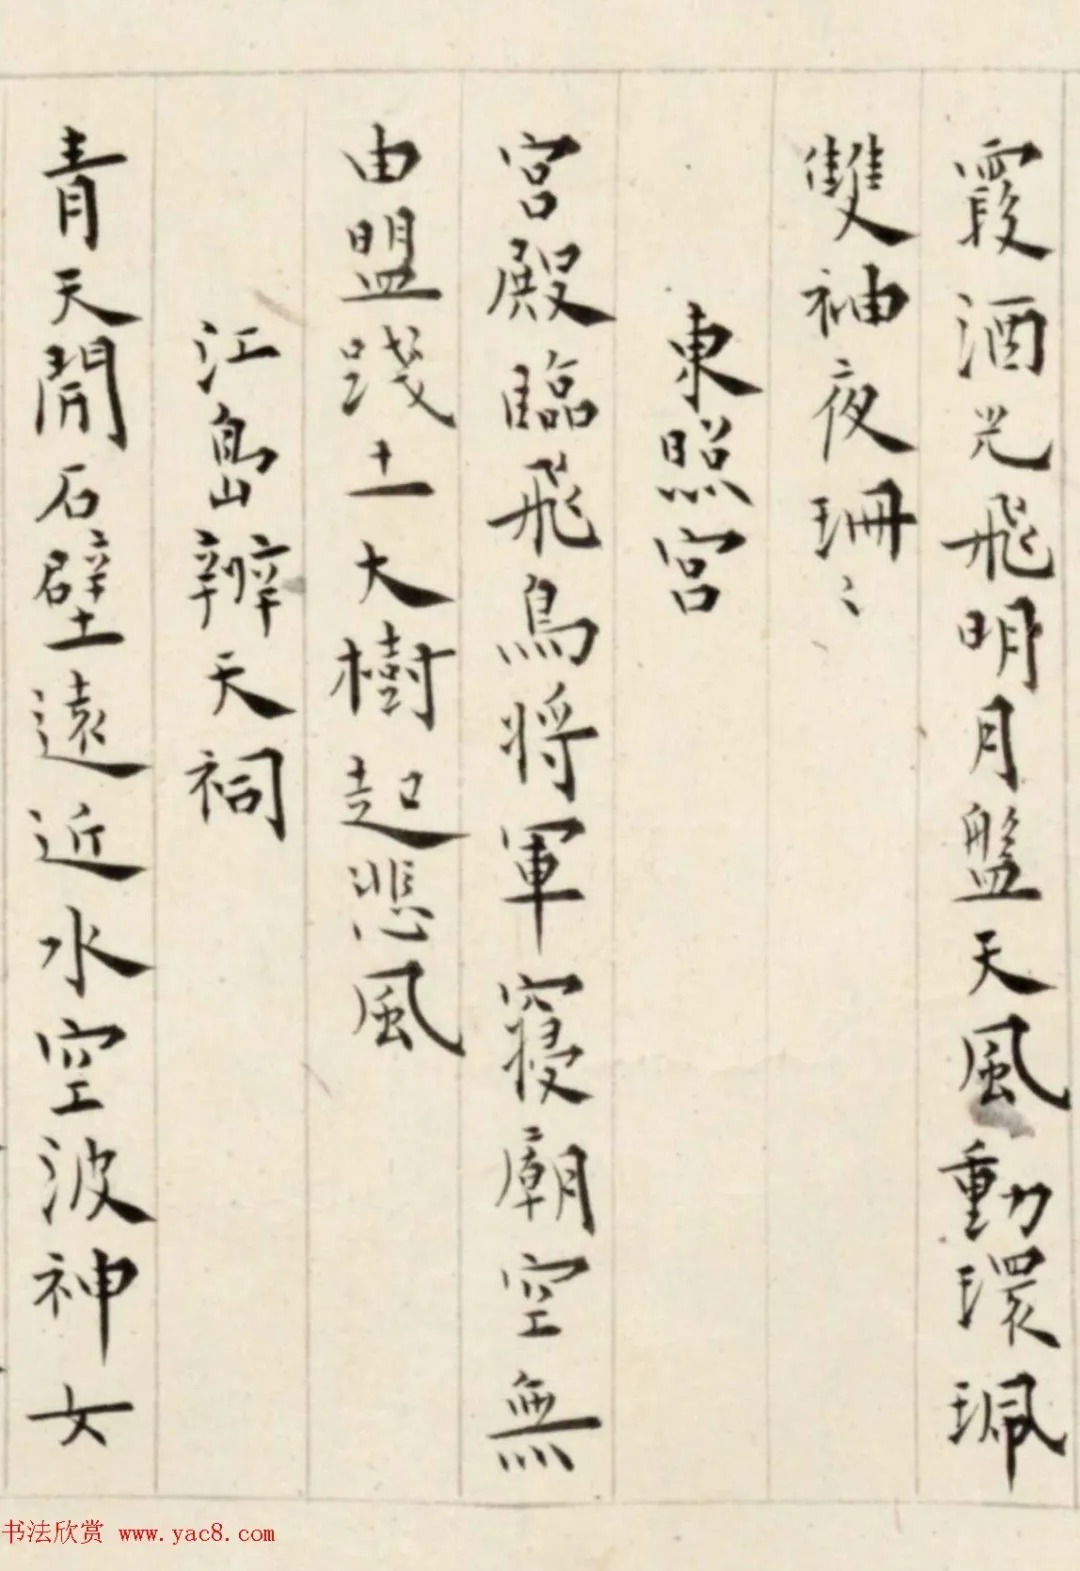 霞酒光飛明月盤天風動環珮
雙袖夜珊〻
東照宮
宮殿臨飛鳥將軍寢廟空無
由盟踐土大樹起悲風
江島辯天祠
青天開石壁遠近水空波神女
书法欣赏 www.yac8.com